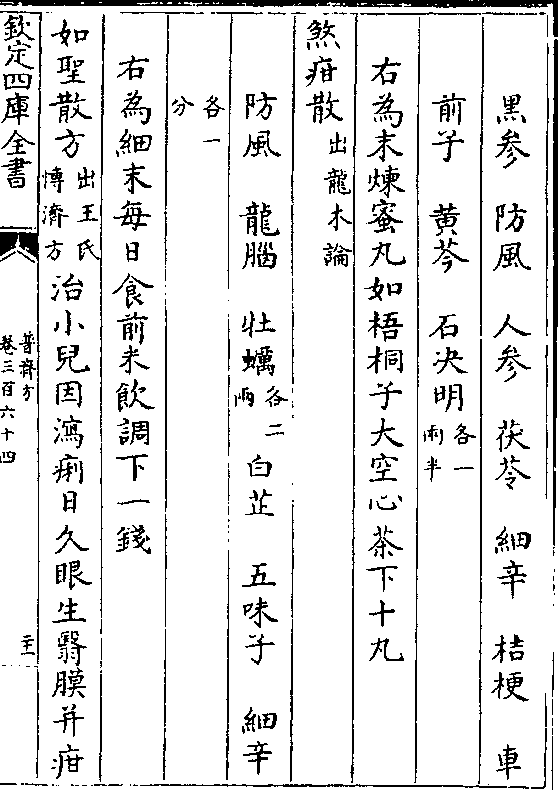 黑参 防風 人参 茯苓 細辛 桔梗 車
前子 黄芩 石决明各一兩半
右為末煉蜜丸如梧桐子大空心茶下十丸
煞疳散出龍木論
防風 龍腦 牡蠣各二兩 白芷 五味子 細辛
各一分
右為細末每日食前米飲調下一錢
如聖散方出王氏愽濟方 治小兒因瀉痢日久眼生翳膜并疳
欽定四庫全書
普濟方
卷三百六十四